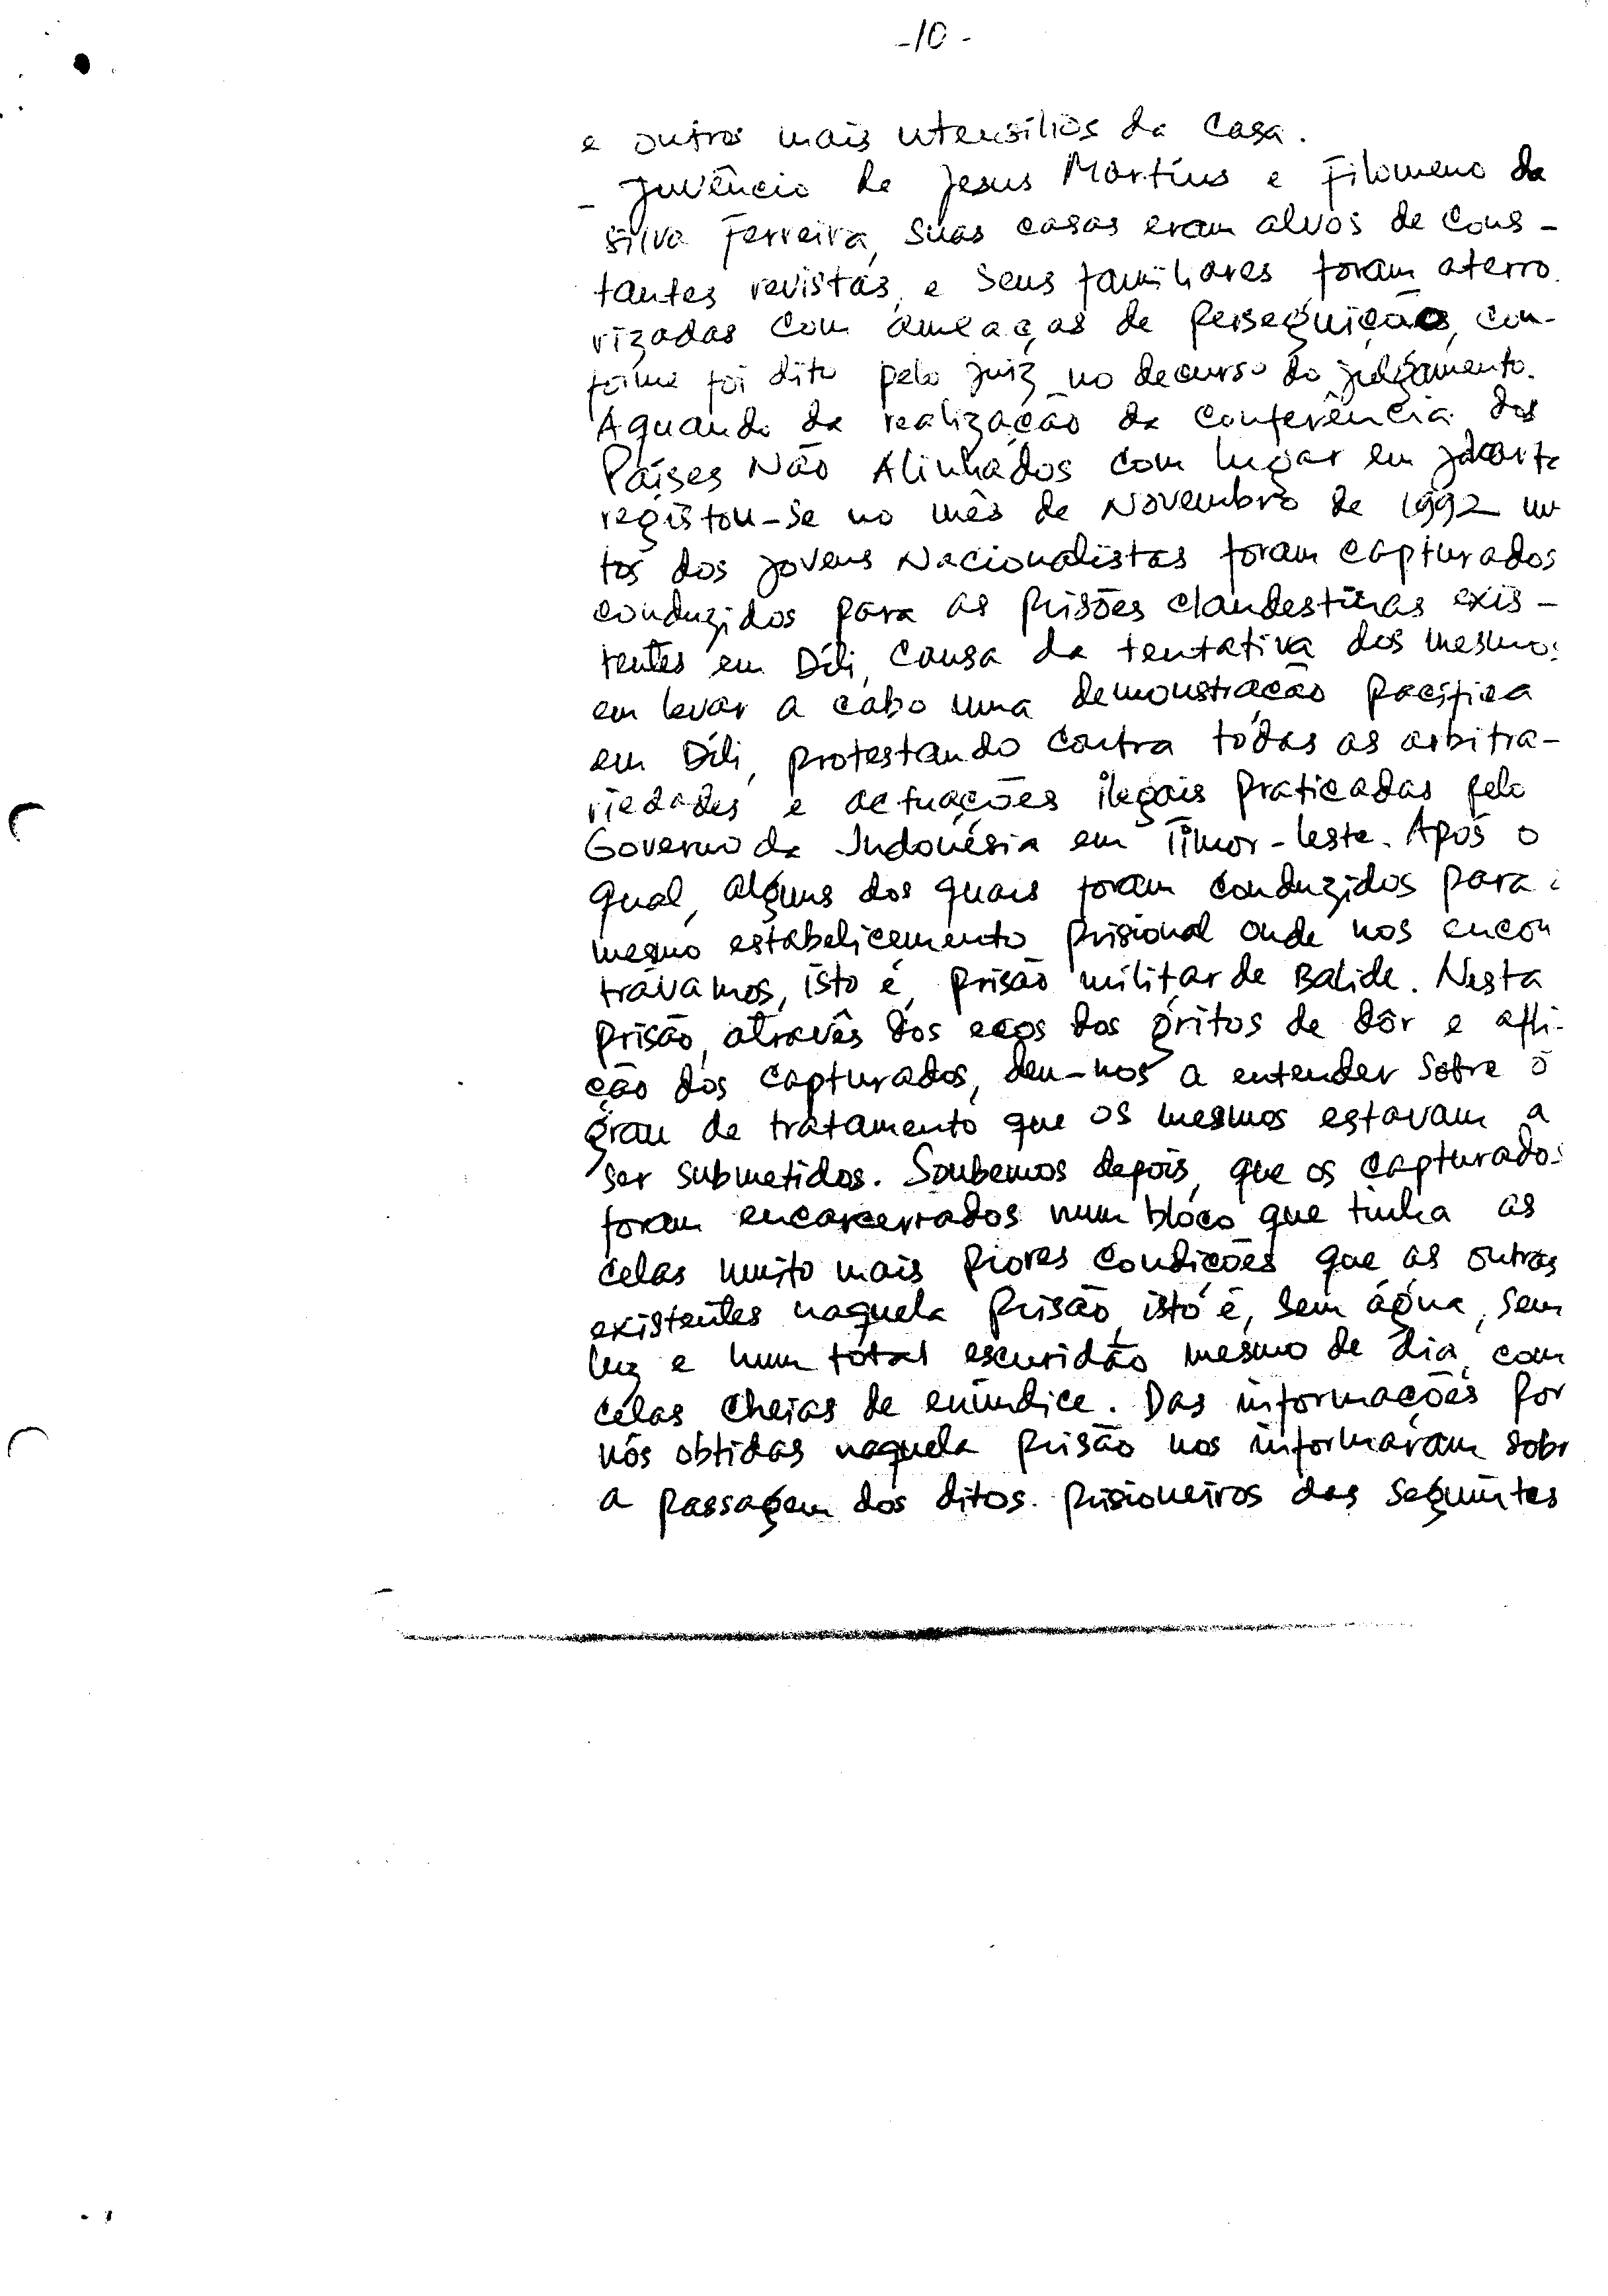 -10-
e outros mais utensílios da casa.
- Juvêncio de Jesus Martins e Filomeno da
Silva Ferreira, suas casas eram alvos de cons-
tantes revistas, e seus familiares foram aterro
rizadas com ameaças de perseguição, con-
forme foi dito pelo juiz no decurso do julgamento.
Aquando da realização da conferência dos
Países Não Alinhados com lugar em Jakarta
registou-se no mês de Novembro de 1992 mu
tos dos jovens Nacionalistas foram capturados
conduzidos para as prisões clandestinas exis-
tentes em Díli, causa da tentativa dos mesmos
em levar a cabo uma demonstração pacífica
em Díli, protestando contra todas as arbitra-
riedades e actuações ilegais praticadas pelo
Governo da Indonésia em Timor-Leste. Após o
qual, alguns dos quais foram conduzidos para
mesmo estabelicemento prisional onde nos encon
trávamos, isto é, prisão militar de Balide. Nesta
prisão, através dos ecos dos gritos de dôr e afli-
ção dos capturados, deu-nos a entender sobre o
grau de tratamento que os mesmos estavam a
ser submetidos. Soubemos depois, que os capturados
foram encarcerrados num bloco que tinha as
celas muito mais piores condições que as outras
existentes naquela prisão, isto é, sem água, sem
luz e num total escuridão mesmo de dia, com
celas cheias de emundice. Das informações por
nós obtidas naquela prisão nos informáram sobr
a passagem dos ditos prisioneiros das seguintes